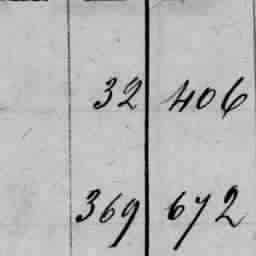 32 406
369 672